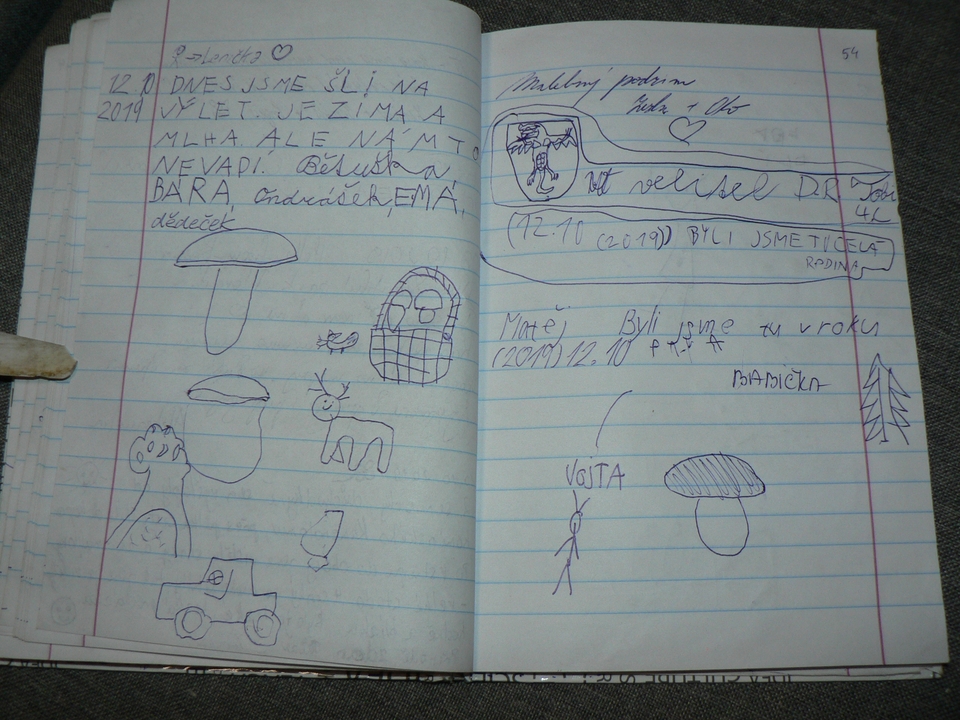 Lenička ♡
12.10 DNES JSME ŠLI NA
2019 VÝLET. JE ZIMA A
MLHA. ALE NÁM TO
NEVADÍ. Bětuška,
BÁRA, Ondrášek, EMA,
dědeček
54
Malebný podzim
♡
velitel DR
4L
(12.10 (2019)) BYLI JSME TU CELÁ
RODINA
Matěj Byli jsme tu v roku
(2019) 12.10
BABIČKA
VOJTA